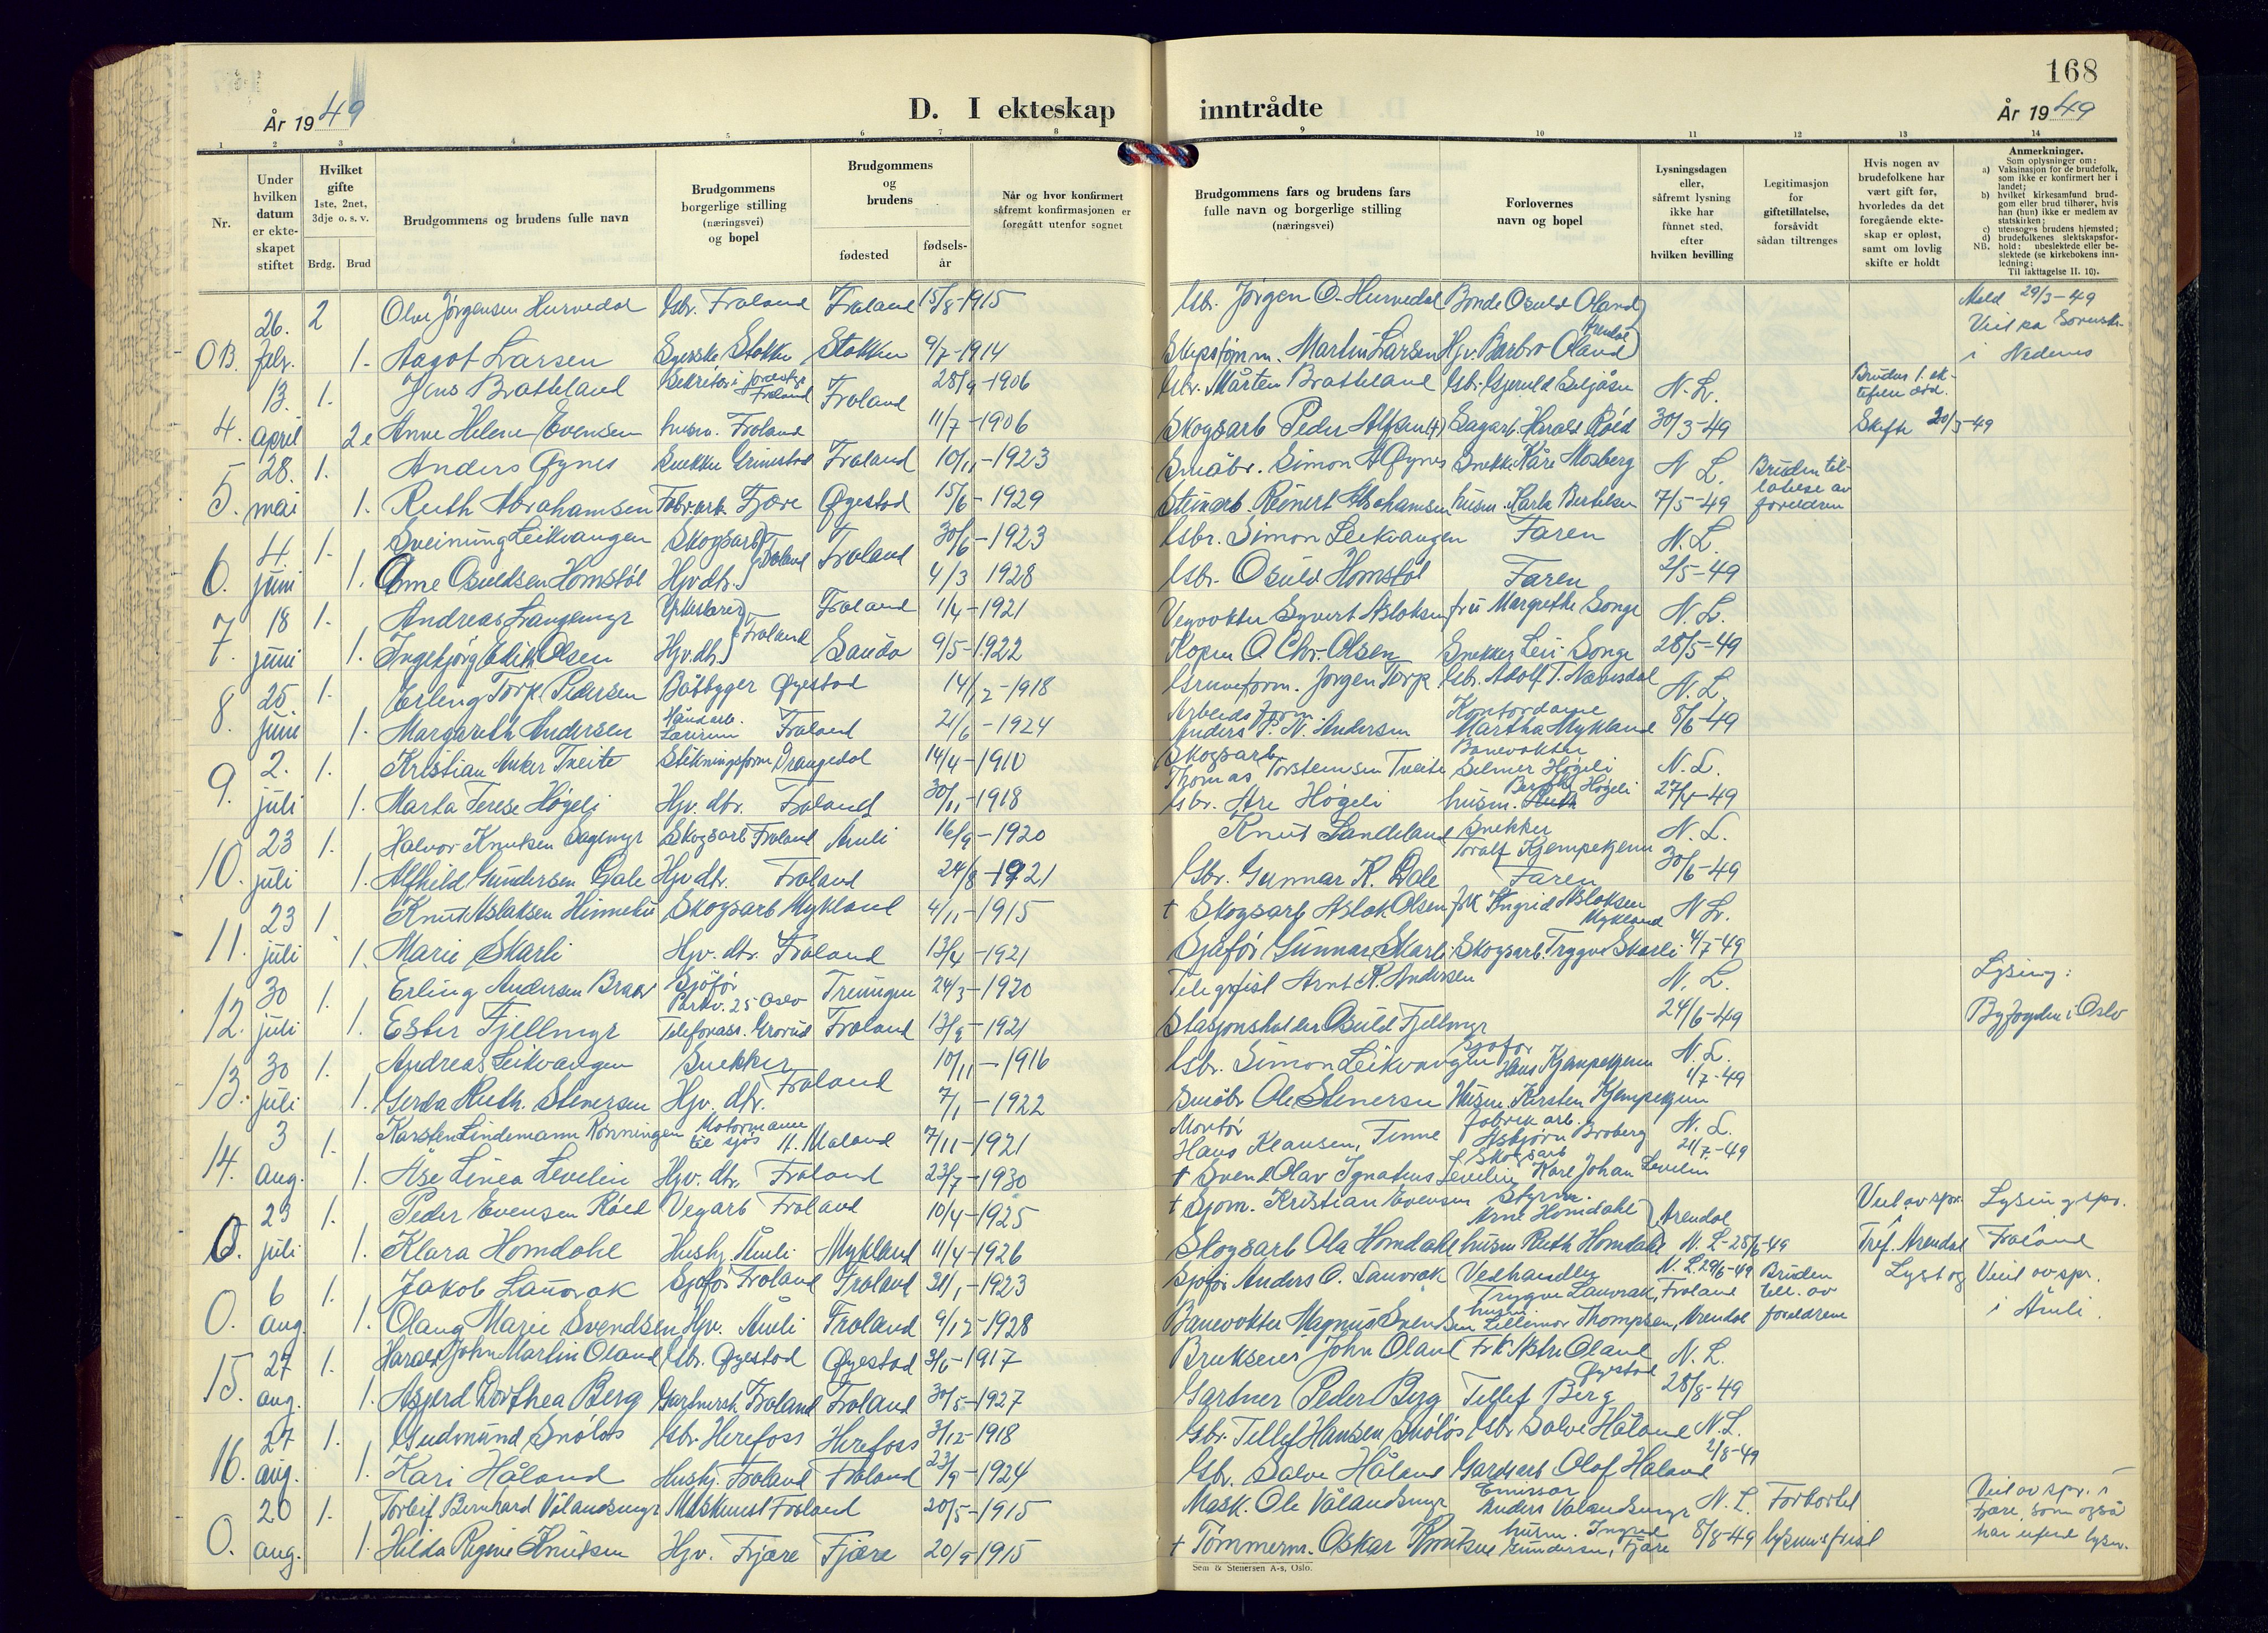 168
År 1949
D. I ekteskap inntrådte
År 1949
1 2 3 4 5 6 7 8 9 10 11 12 13 14
Nr.
Under hvilken datum er ekteskapet stiftet
Hvilket gifte 1ste, 2net, 3dje o. s. v.
Brdg. Brud
Brudgommens og brudens fulle navn
Brudgommens borgerlige stilling (næringsvei) og bopel
Brudgommens og brudens
fødested
fødsels-år
Når og hvor konfirmert såfremt konfirmasjonen er foregått utenfor sognet
Brudgommens fars og brudens fars fulle navn og borgerlige stilling (næringsvei)
Forlovernes navn og bopel
Lysningsdagen eller, såfremt lysning ikke har funnet sted, efter hvilken bevilling
Legitimasjon for giftetillatelse, forsåvidt sådan tiltrenges
Hvis nogen av brudefolkene har vært gift før, hvorledes da det foregående ekteskap er opløst, samt om lovlig skifte er holdt
Anmerkninger.
Som oplysninger om:
a) Vaksinasjon for de brudefolk, som ikke er konfirmert her i landet;
b) hvilket kirkesamfund brudgom eller brud tilhører, hvis han (hun) ikke er medlem av statskirken;
c) utensogns brudens hjemsted;
d) brudefolkenes slektskapsforhold: ubeslektede eller beslektede (se kirkebokens innledning;
NB. Til iakttagelse II. 10).
26. 2 Olav Jørgensen Hurvedal Gbr. Froland Froland 15/8-1915 Gbr. Jørgen O. Hurvedal Bonde Osuld Oland Meld 29/3-49
OB. febr. 1. Aagot Larsen Syerske Stokken Stokken 9/7-1914 Skipstømm. Martin Larsen Hjv. Barbro Oland Arendal i Nedenes
13. 1. Jens Bratteland Froland Froland 28/9-1906 Gbr. Mårten Bratteland Gbr. N. L. Brudens 1. ektefelle død.
4. april 2e Anne Helene Evensen husm. Froland 11/7-1906 Skogsarb Peder Alfsen (†) Sagarb. Harald Røed 30/3-49 Skifte 20/3-49
28. 1. Anders Øynes Snekker Grimstad Froland 10/11-1923 Småbr. Simon A Øynes Snekk. Kåre Mosberg N. L. Bruden til-
5. mai 1. Ruth Abrahamsen Fabr.arb. Fjære Øyestad 15/6-1929 Steinarb. Reinert Abrahamsen husm. Bertelsen 7/5-49 latelse av foreldren
4 1. Sveinung Leikvangen Skogsarb. Froland Froland 30/6-1923 Gbr. Simon Leikvangen Faren N. L.
6. juni 1. Anne Osuldsen Homstøl Hjv. dtr. 4/3 1928 Gbr. Osuld Homstøl Faren 2/5-49
18 1. Andreas Langemyr Froland Froland 1/4-1921 Vegvokter Syvert Aslaksen fru Margrethe Songe N. L.
7. juni 1. Ingebjørg Edith Olsen Hjv. dtr. Sauda 9/5-1922 O Chr. Olsen Snekker Songe 28/5-49
25. 1. Erling Torp. Pedersen Båtbygger Øyestad 14/12-1918 Gruveform. Jørgen Torp Gbr. Adolf T. N. L.
8. juni 1. Margareth Andersen Håndarb. Lærerin Froland 21/6-1924 Arbeidsform. Anders Andersen Kontordame Martha Mykland 8/6-49
2. 1. Kristian Anker Tveite Drangedal 14/4-1910 Skogsarb Thomas Torsteinsen Tveite Banevokter Selmer Høgeli N. L.
9. juli 1. Marta Terese Høgeli Hjv. dtr. Froland 30/11-1918 Gbr. Are Høgeli husm. Høgeli 27/4-49
23 1. Halvor Knutsen Skogsarb Froland Åmli 16/9-1920 Knut Landeland Snekker Toralf Kjempekjenn N. L.
10. juli 1. Alfhild Gundersen Dale Hjv dtr. Froland 24/8-1921 Gbr. Gunnar K. Dale Faren 30/6-49
23 1. Knut Aslaksen Skogsarb Mykland 4/11-1915 † Skogsarb Aslak Olsen frk Ingrid Aslaksen Mykland N L.
11. juli 1. Marie Skarli Hjv. dtr. Froland 13/4-1921 Sjåfør Gunnar Skarli Skogsarb. Trygve Skarli 4/7-49
30 1. Erling Andersen Sjåfør Parkv. 25 Oslo Treungen 24/3-1920 Telegrafist Arnt Andersen N. L. Lysing:
12. juli 1. Ester Fjellmyr Telefonass. Grorud Froland 13/9-1921 Stasjonsholder Osuld Fjellmyr 24/6-49 Byfogden i Oslo
30 1. Andreas Leikvangen Snekker Froland 10/11-1916 Gbr. Simon Leikvangen Sjåfør Hans Kjempekjenn N. L.
13. juli 1. Gerda Ruth. Stenersen Hjv. dtr. 7/1-1922 Småbr Ole Stenersen Husm. Kirsten Kjempekjenn 1/7-49
3 1. Karsten Lindemann Rønningen Motormann til sjøs 7/11-1921 Montør Hans Klausen, Tinne fabrik arb. Asbjørn Broberg N. L.
14. aug. 1. Åse Linea Levelin Hjv. dtr. Froland 23/7-1930 † Svend Olav Ignatius Levelin Skogsarb Karl Johan Levelin 21/7-49
23 1. Peder Evensen Røed Vegarb Froland 10/4-1925 † Kristian Evensen Styrm. Arne Homdahl Arendal Viel av spr. Lysing spr.
O. juli 1. Klara Homdahl Hushj. Åmli Mykland 11/4-1926 Skogsarb Ola Homdahl husm Ruth Homdahl N. L-28/6-49 i Tref. Arendal i Froland
6 1. Jakob Lauvrak Sjåfør Froland Froland 31/1-1923 Sjåfør Anders O. Lauvrak Vedhandler Trygve Lauvrak, Froland N. L. 29/6-49 Bruden till. av Lyst og Viel av spr.
O. aug. 1. Olaug Marie Svendsen Hjv. Åmli Froland 9/12-1928 Banevokter Magnus Svendsen husm. Lillemor Thompsen, Arendal foreldrene i Åmli
27 1. Harald John Martin Oland Gbr. Øyestad Øyestad 3/6-1917 Brukseier John Oland Frk Oland Øyestad N. L.
15. aug. 1. Asgerd Dorthea Berg Froland Froland 30/5-1927 Gartner Peder Berg Tellef Berg 28/8-49
27 1. Gudmund Snøløs Gbr. Herefoss Herefoss 3/12-1918 Gbr. Tellef Hansen Snøløs Gbr Salve Håland N. L.
16. aug. 1. Kari Håland Hushj. Froland Froland 23/9-1924 Gbr. Salve Håland Olaf Håland 2/8-49
20 1. Torleif Bernhard Vålandsmyr Maskinist Froland 20/5-1915 Mask. Ole Vålandsmyr Emissær Anders Valandsmyr N. L. Forkortet Viel av spr. i
O. aug. 1. Hilda Regine Knutsen Hjv. Fjære Fjære 20/9-1915 † Tømmerm. Oskar Knutsen husm. Ingrid Gundersen, Fjære 8/8-49 lysningsfrist Fjære, som også har utført lysn.
Sem & Stenersen A-s, Oslo.